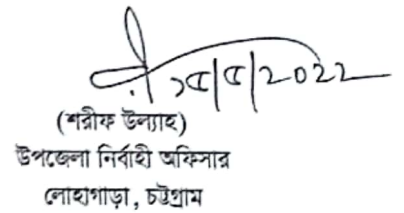 ১৫/৫/2022
(শরীফ উল্যাহ)
উপজেলা নির্বাহী অফিসার
লোহাগাড়া, চট্টগ্রাম